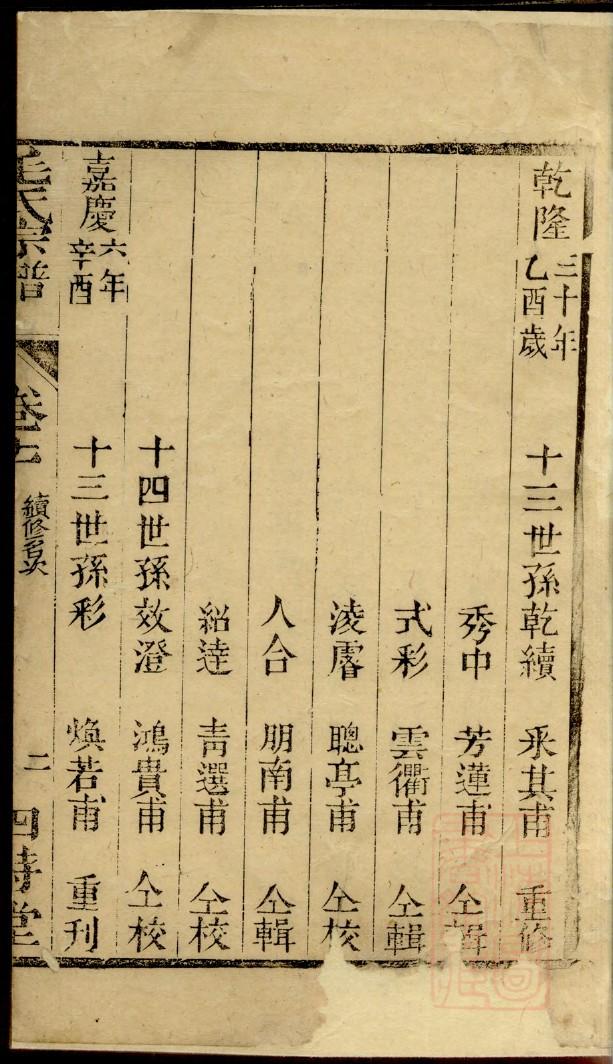 乾隆三十年乙酉歲 十三世孫乾續 釆其甫 重修
秀中 芳蓮甫 仝輯
式彩 雲衢甫 仝輯
淩霄 聰亭甫 仝校
人合 朋南甫 仝輯
紹逵 青選甫 仝校
十四世孫效澄 鴻貴甫 仝校
嘉慶六年辛酉 十三世孫彩 煥若甫 重刊
毛氏宗譜 卷七 續修名次 二